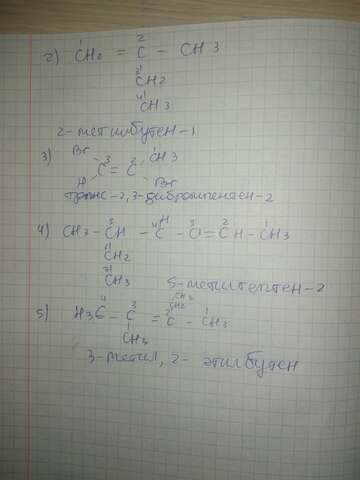 2) ¹CH₂ = ²C - CH3
³CH₂
⁴CH3
2-метилбутен-1
3) Br ³C = ²C ¹CH3
H Br
транс-2,3-дибромпентен-2
4) CH3 - CH - C - C = CH - CH3
CH₂
CH3
5-метилгептен-2
5) H3C - C = C - CH3
CH3
3-метил, 2-этилбутен